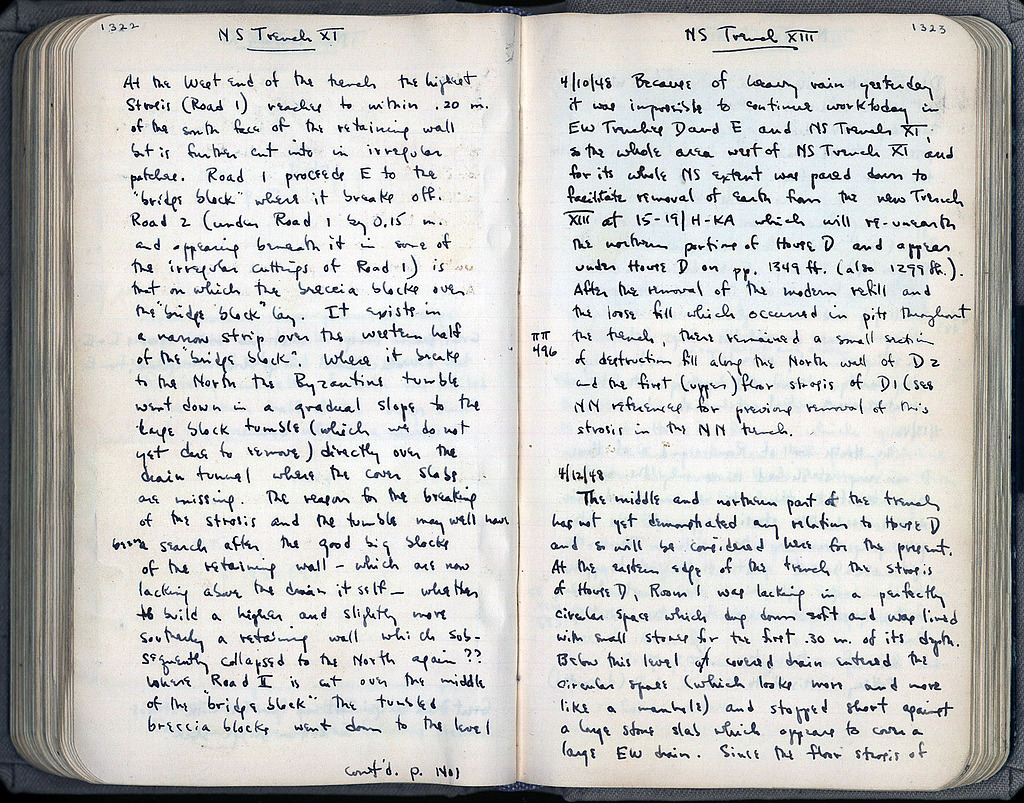 1322
NS Trench XI
At the West end of the trench the highest
Strosis (Road 1) reaches to within .20 m.
of the south face of the retaining wall
but is further cut into in irregular
patches. Road 1 proceeds E to the
"bridge block" where it breaks off.
Road 2 (under Road 1 by 0.15 m.
and appearing beneath it in some of
the irregular cuttings of Road 1) is
that on which the breccia blocks over
the "bridge block" lay. It exists in
a narrow strip over the western half
of the "bridge block". Where it breaks
to the North the Byzantine tumble
went down in a gradual slope to the
large block tumble (which we do not
yet dare to remove) directly over the
drain tunnel where the cover slabs
are missing. The reason for the breaking
of the strosis and the tumble may well have
been a search after the good big blocks
of the retaining wall – which are now
lacking above the drain itself – whether
to build a higher and slightly more
southerly a retaining wall which sub-
sequently collapsed to the North again??
Where Road II is cut over the middle
of the "bridge block" the tumbled
breccia blocks went down to the level
Cont'd. p. 1401
1323
NS Trench XIII
4/10/48 Because of heavy rain yesterday
it was impossible to continue work today in
EW Trenches D and E and NS Trench XI,
so the whole area west of NS Trench XI and
for its whole NS extent was pared down to
facilitate removal of earth from the new Trench
XIII at 15-19/H-KA which will re-unearth
the northern portion of House D and appears
under House D on pp. 1349 ff. (also 1299 ff.).
After the removal of the modern refill and
the loose fill which occurred in pits throughout
ΠΠ the trench, there remained a small section
496 of destruction fill along the North wall of D2
and the first (upper) floor strosis of D1 (see
NN references for previous removal of this
strosis in the NN trench.
4/12/48
The middle and northern part of the trench
has not yet demonstrated any relation to House D
and so will be considered here for the present.
At the eastern edge of the trench the strosis
of House D, Room 1 was lacking in a perfectly
circular space which dug down soft and was lined
with small stones for the first .30 m. of its depth.
Below this level a covered drain entered the
circular space (which looks more and more
like a manhole) and stopped short against
a large stone slab which appears to cover a
large EW drain. Since the floor strosis of